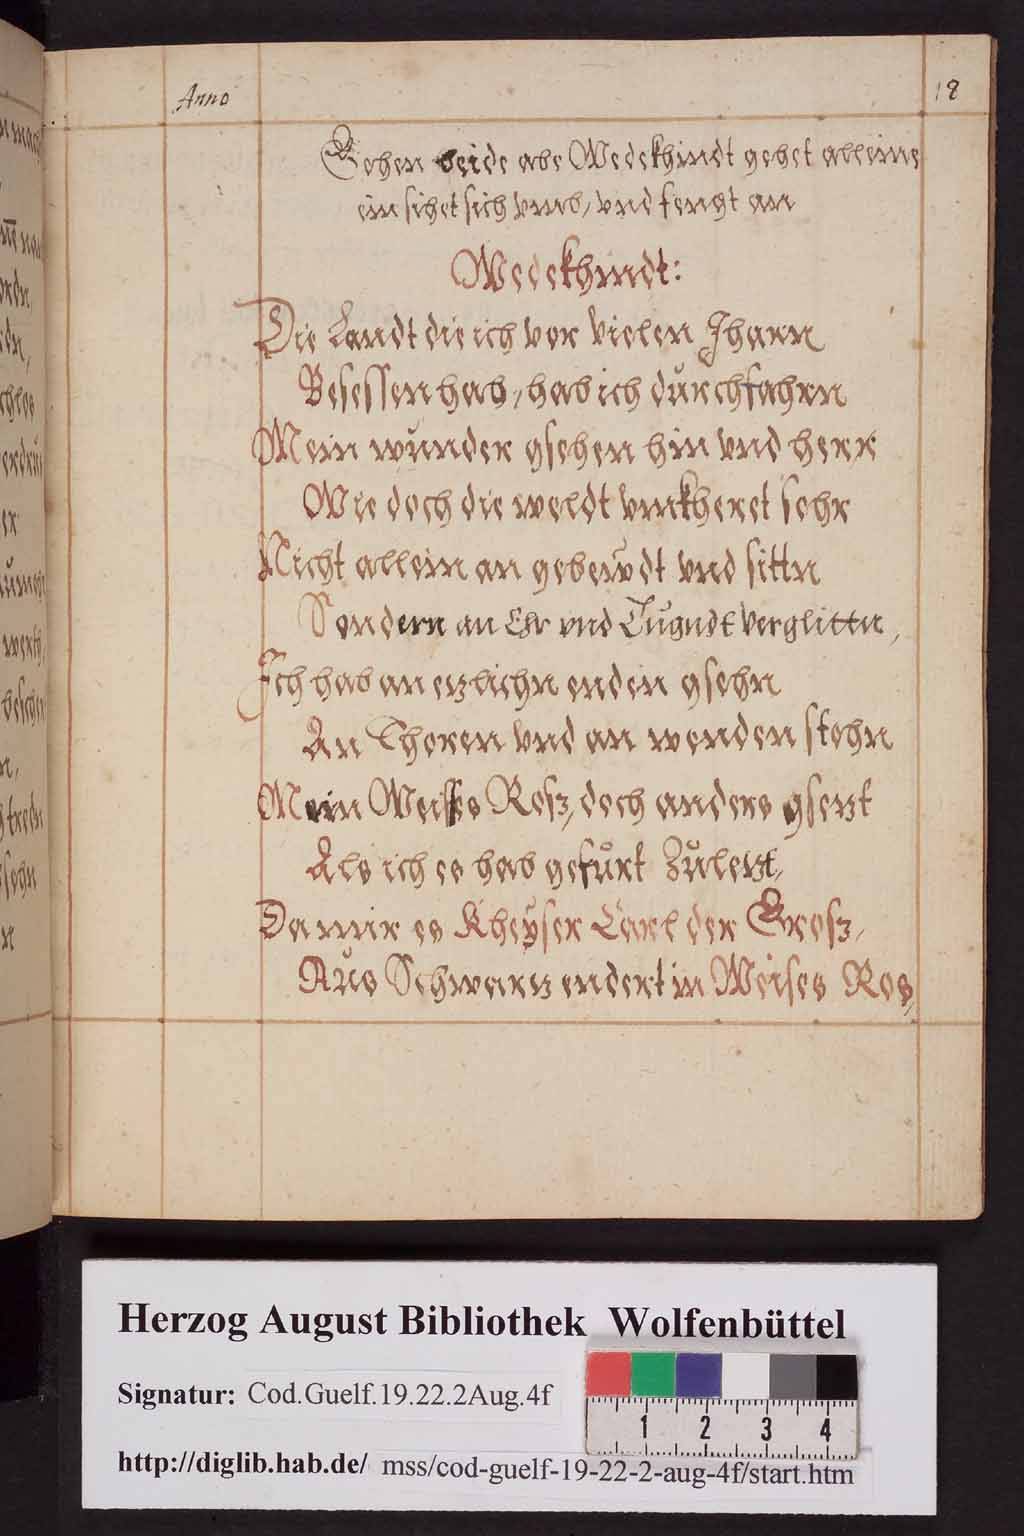 Anno
18
Gehen beide abe Wedekhindt gehet alleine
ein sihet sich vmb, vnd fengt an
Wedekhindt:
Die Landt die ich vor vielen Jharn
Besessen hab, hab ich durchfahrn
Mein wunder gsehen hin vnd herr
Wie doch die weldt vmkheret sehr
Nicht allein an geberdt vnd sittn
Sondern an Ehr vnd Tugndt verglittn,
Ich hab an ezlichn enden gsehn
An Thoren vnd an wenden stehn
Mein Weisses Rosz, doch anders gsetzt
Als ich es hab gefurt Zuletzt,
Da mir es Kheyser Carl der Grosz,
Aus Schwartz endert in Weises Ros,
Herzog August Bibliothek Wolfenbüttel
Signatur: Cod.Guelf.19.22.2Aug.4f
1 2 3 4
http://diglib.hab.de/ mss/cod-guelf-19-22-2-aug-4f/start.htm